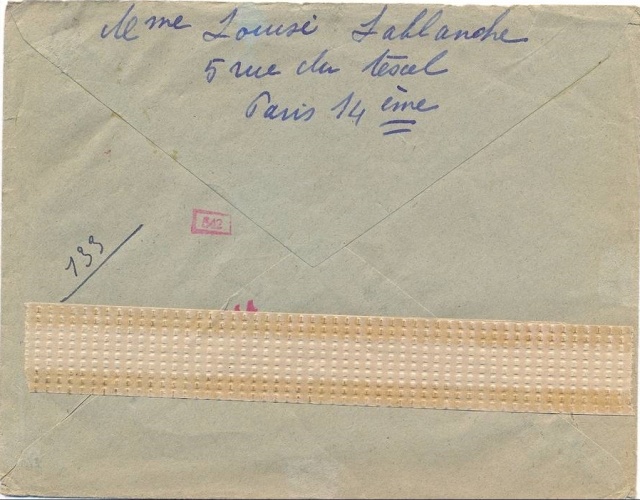 Mme Louise Lablanche
5 rue du texel
Paris 14 ème
542
133